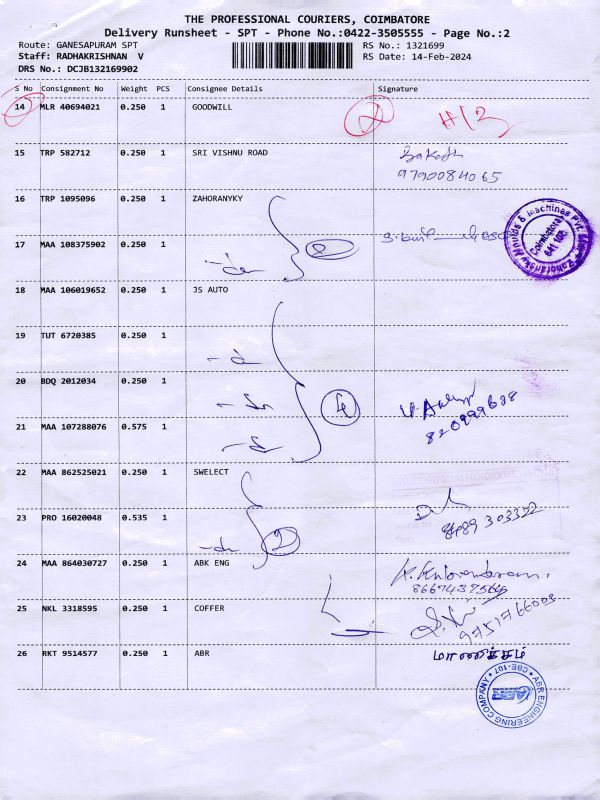 THE PROFESSIONAL COURIERS, COIMBATORE
Delivery Runsheet - SPT - Phone No.:0422-3505555 - Page No.:2
Route: GANESAPURAM SPT RS No.: 1321699
Staff: RADHAKRISHNAN V RS Date: 14-Feb-2024
DRS No.: DCJB132169902
S No Consignment No Weight PCS Consignee Details Signature
14 MLR 40694021 0.250 1 GOODWILL
15 TRP 582712 0.250 1 SRI VISHNU ROAD
9790084065
16 TRP 1095096 0.250 1 ZAHORANYKY
17 MAA 108375902 0.250 1
Zahoransky Moulds & Machines Pvt.
Coimbatore
641 105
18 MAA 106019652 0.250 1 JS AUTO
19 TUT 6720385 0.250 1
20 BDQ 2012034 0.250 1
4
21 MAA 107288076 0.575 1
22 MAA 862525021 0.250 1 SWELECT
23 PRO 16020048 0.535 1
2
24 MAA 864030727 0.250 1 ABK ENG
25 NKL 3318595 0.250 1 COFFER
9751766003
26 RKT 9514577 0.250 1 ABR
மாணிக்கம்
ABR ENGINEERING COMPANY
CBE-107